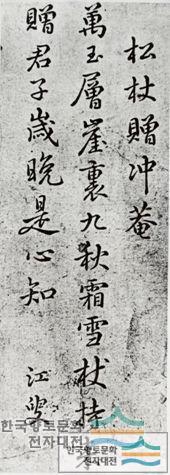 松杖贈冲菴
萬玉層崖裏九秋霜雪杖持
贈君子歲晚是心知
江叟
한국향토문화
전자대전
한국향토문화
전자대전